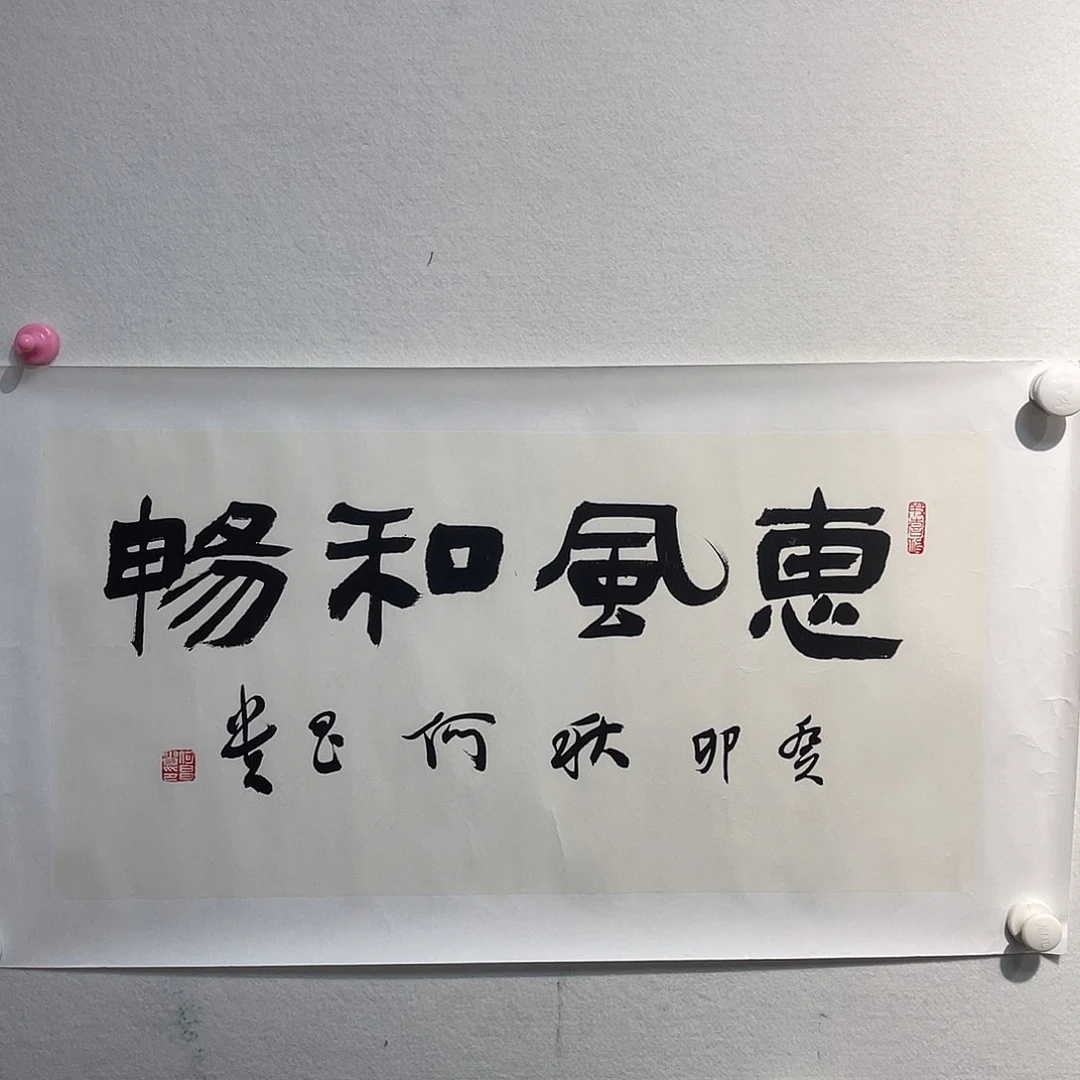 惠風和暢
癸卯秋何昌貴